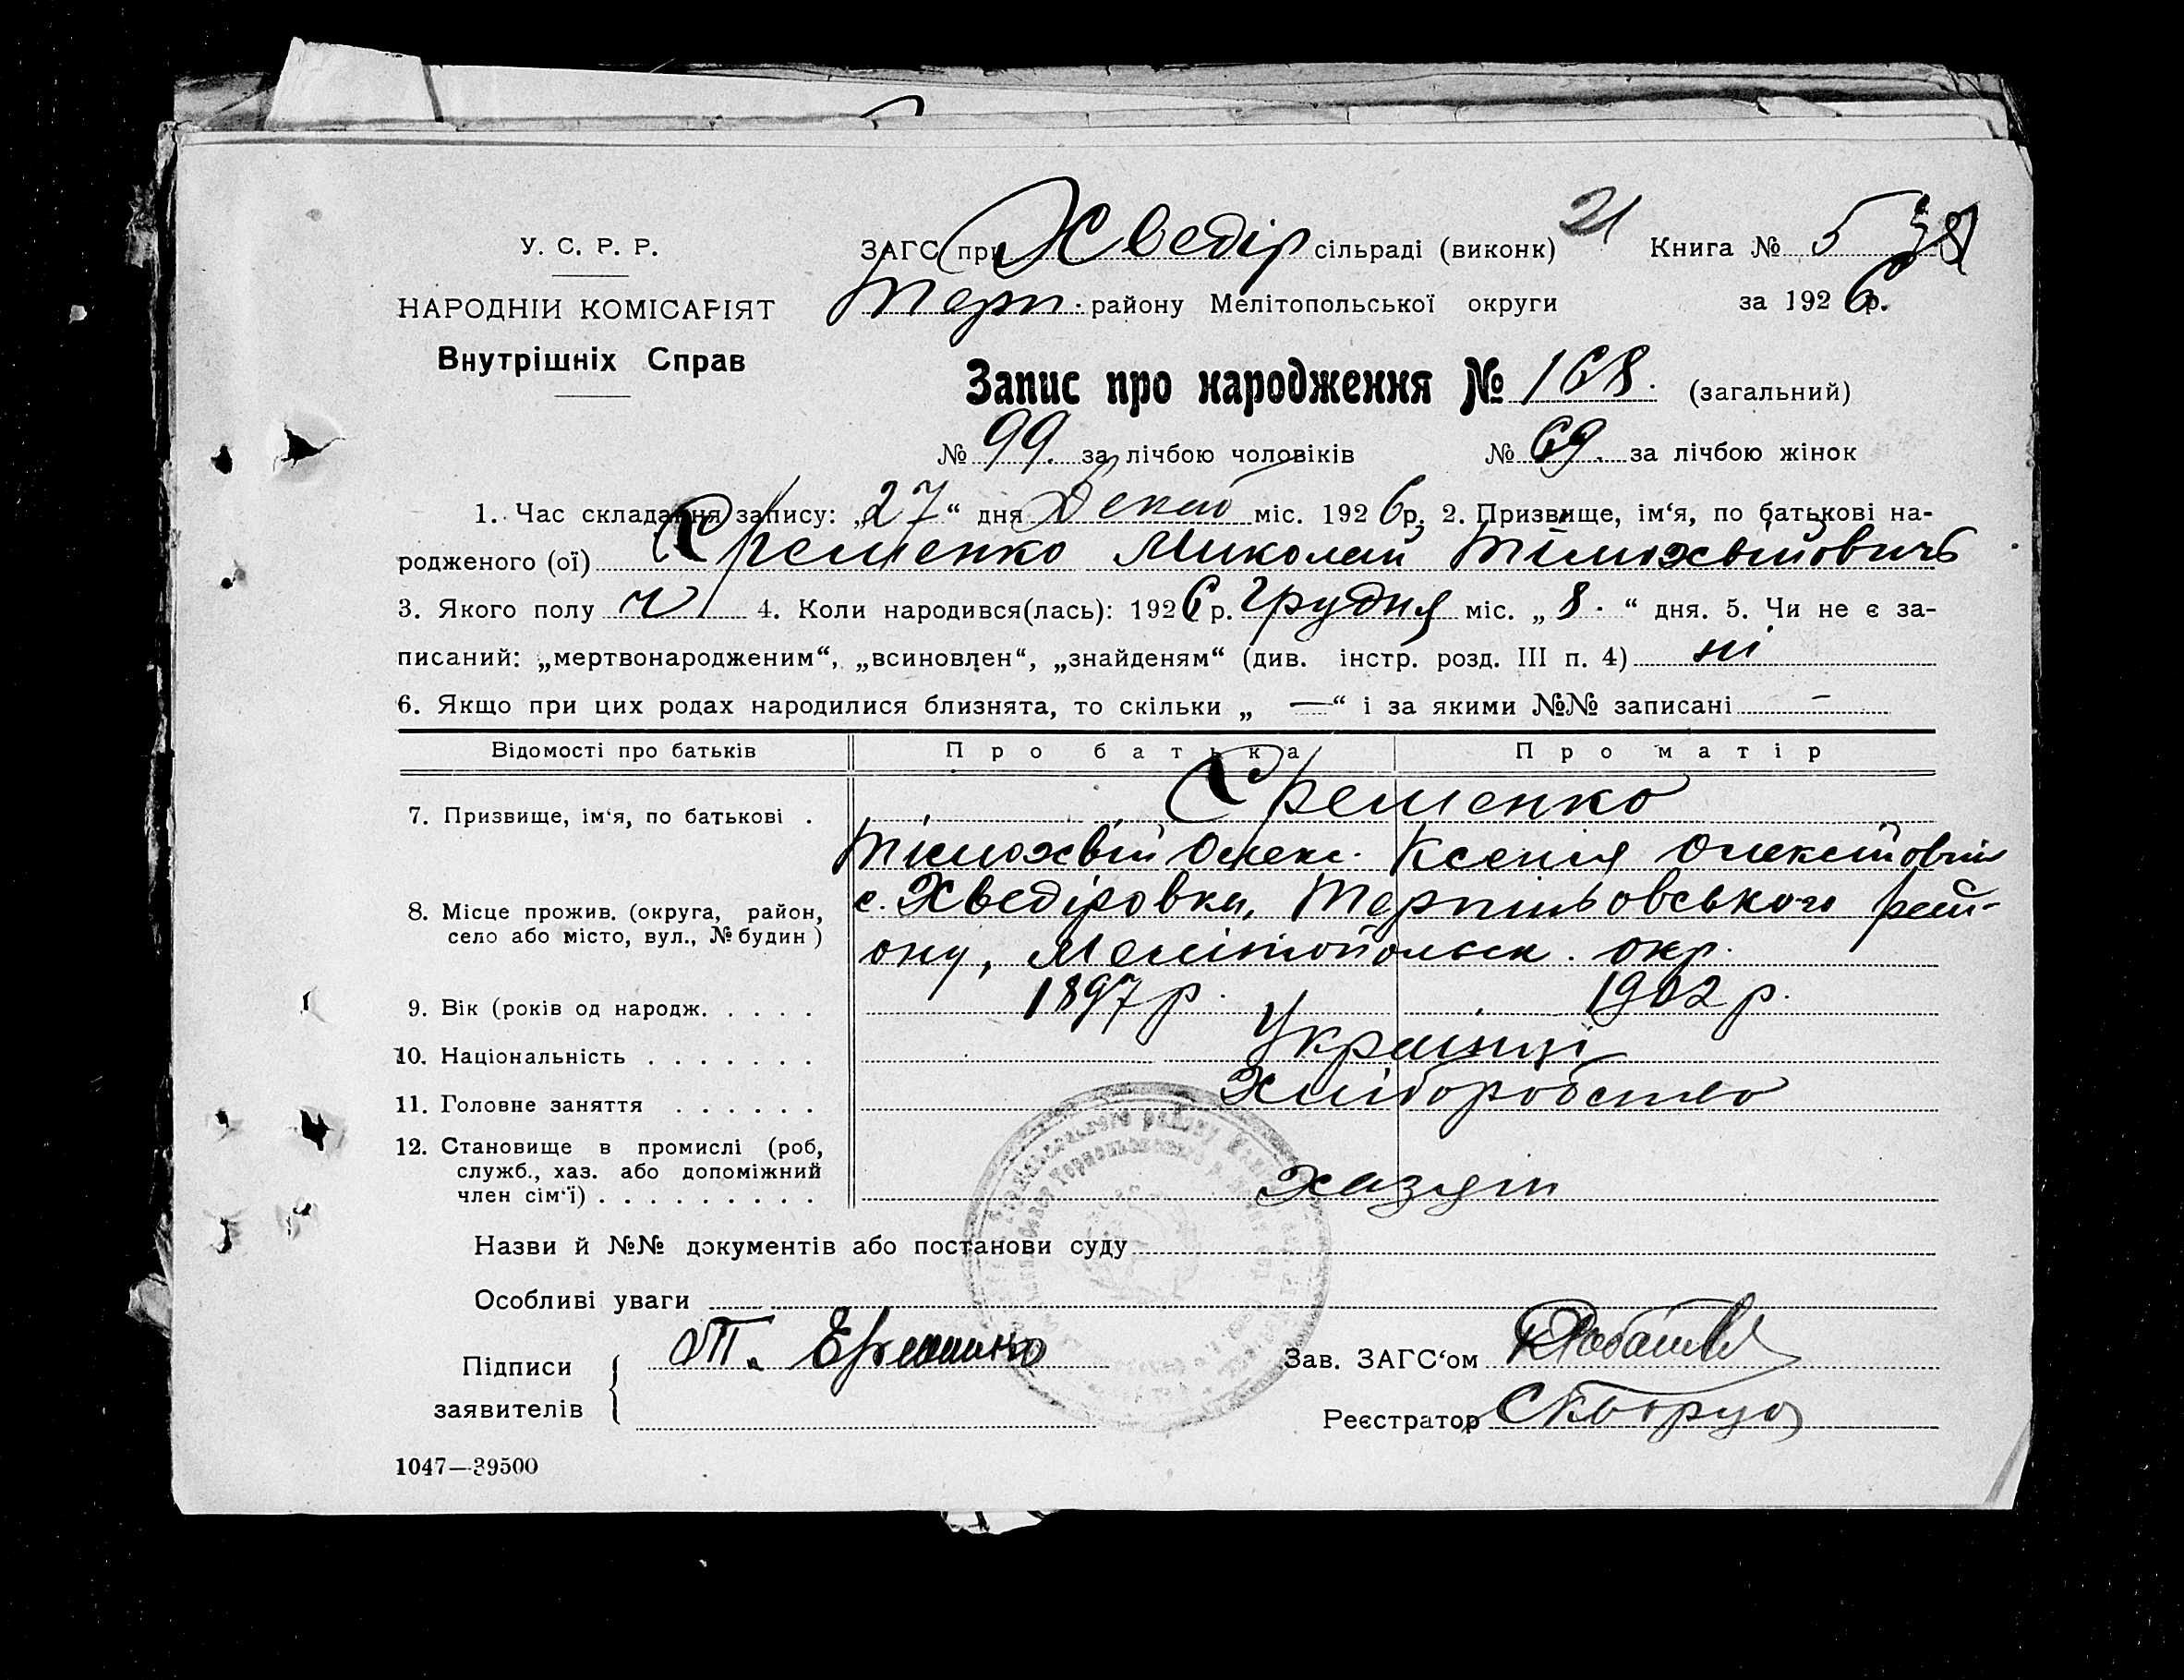 21
У. С. Р. Р. ЗАГС при Хведір сільраді (виконк) Книга № 5 38
НАРОДНІЙ КОМІСАРІЯТ Терп. району Мелітопольської округи за 1926 р.
Внутрішніх Справ
Запис про народження № 168. (загальний)
№ 99. за лічбою чоловіків № 69. за лічбою жінок
1. Час складання запису: „27“ дня Декаб міс. 1926 р. 2. Призвище, ім‘я, по батькові на-
родженого (ої) Єременко Миколай Тімохвійовичь
3. Якого полу ч 4. Коли народився(лась): 1926 р. Грудня міс. „8.“ дня. 5. Чи не є за-
писаний: „мертвонародженим“, „всиновлен“, „знайденям“ (див. інстр. розд. III п. 4) ні
6. Якщо при цих родах народилися близнята, то скільки „ — “ і за якими №№ записані -
Відомості про батьків Про батька Про матір
7. Призвище, ім‘я, по батькові . Єременко
Тімохвій Олекс. Ксенія Олексійовна
8. Місце прожив. (округа, район, село або місто, вул., № будин) с. Хведіровка, Терпіньовського рай-
ону, Мелітопольськ. окр.
9. Вік (років од народж. . . . . 1897 р. 1902 р.
10. Національність . . . . . . . Українці
11. Головне заняття . . . . . . Хліборобство
12. Становище в промислі (роб,
служб., хаз. або допоміжний
член сім‘ї) . . . . . . . . . хазяїн
Назви й №№ документів або постанови суду
Особливі уваги
Підписи Т. Еременко Зав. ЗАГС‘ом
заявителів Реєстратор
1047—39500